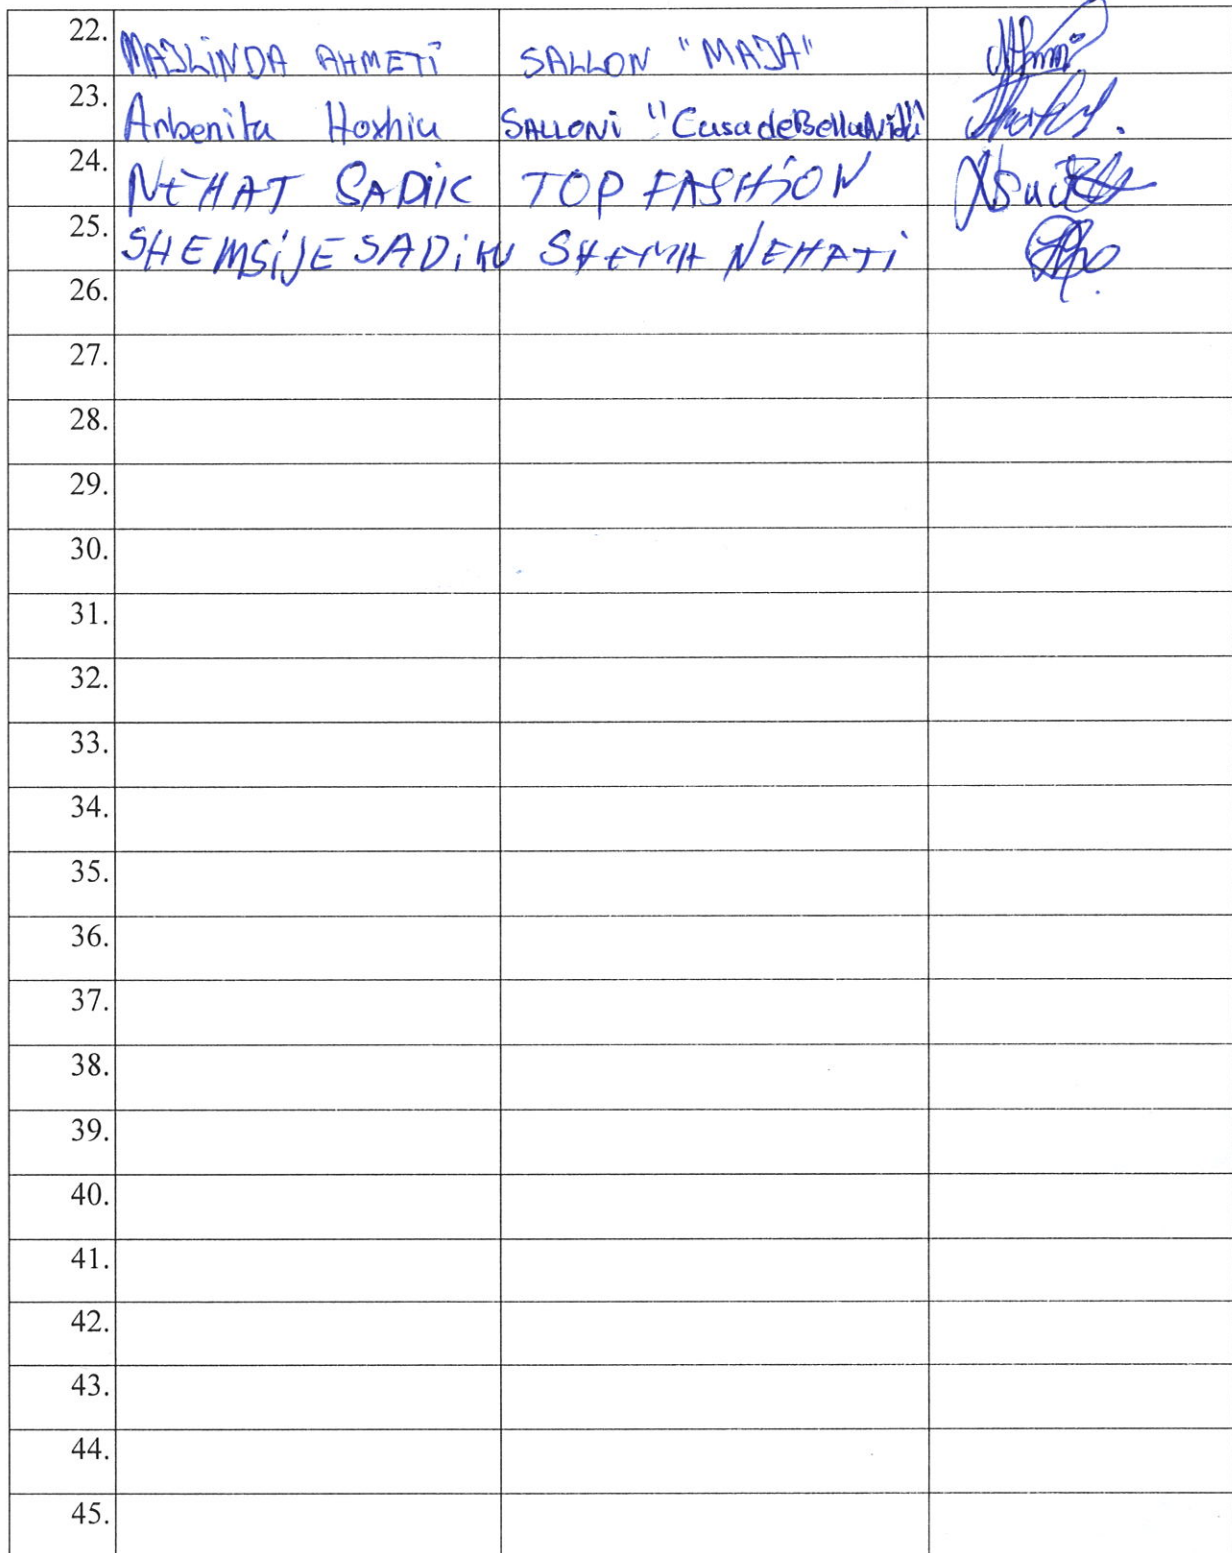 22. MAJLINDA AHMETI SALLON "MAJA"
23. Arbenita Hoxhia SALLONi "CasadeBella
24. NEHAT SADIK TOP FASHION
25. SHEMSIJE SADIKU NEHATI
26.
27.
28.
29.
30.
31.
32.
33.
34.
35.
36.
37.
38.
39.
40.
41.
42.
43.
44.
45.